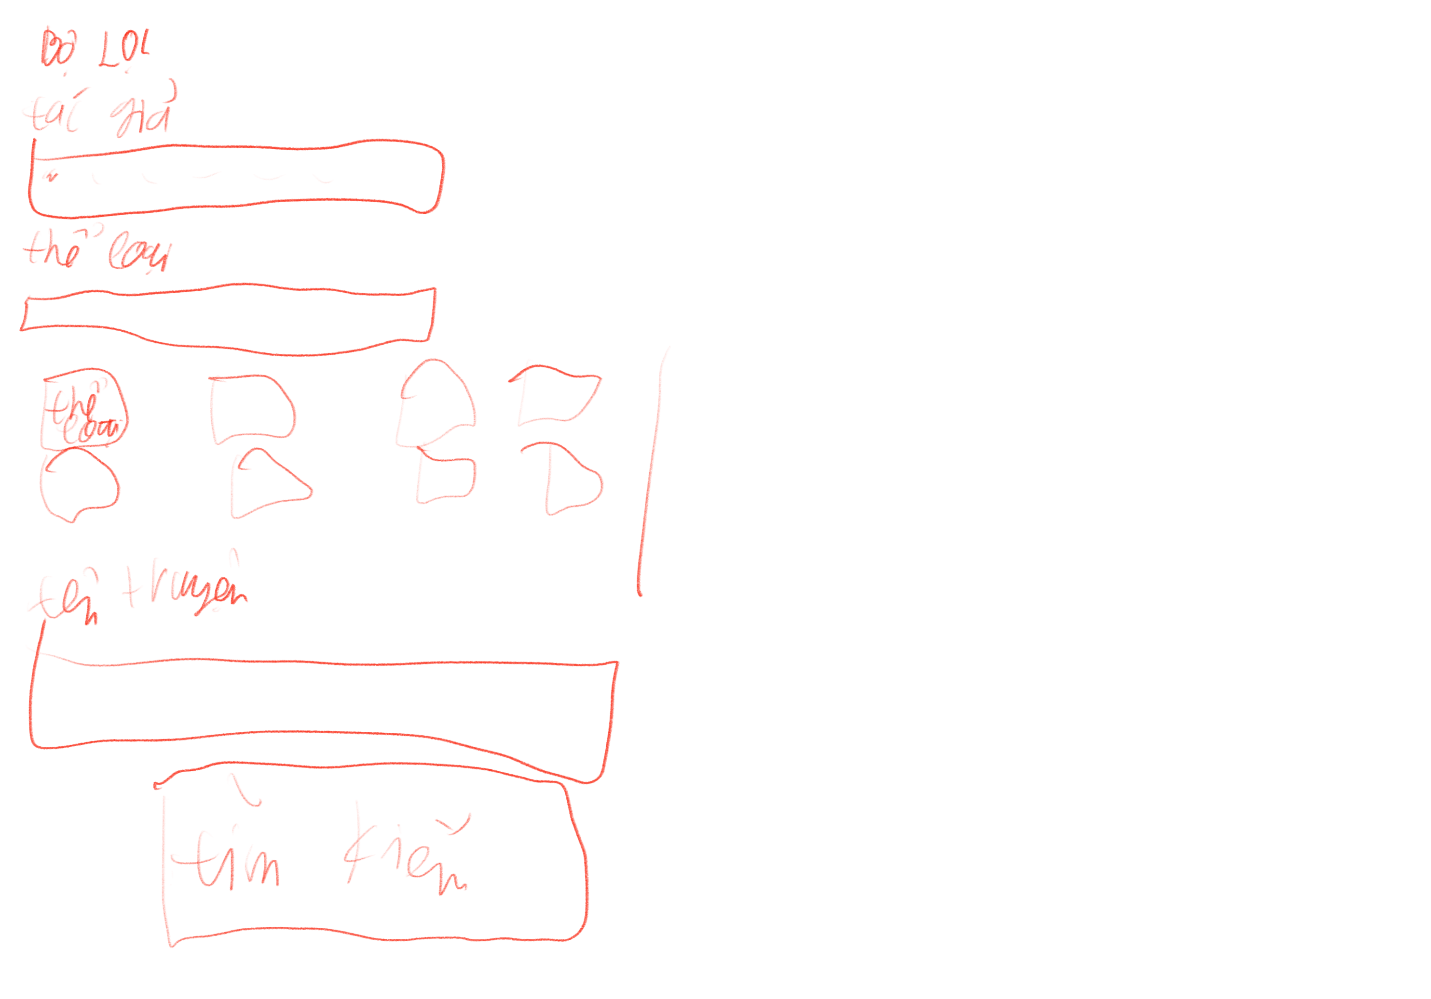 Bộ LỌC
tác giả
thể loại
thể
loại
tên truyện
tìm kiếm